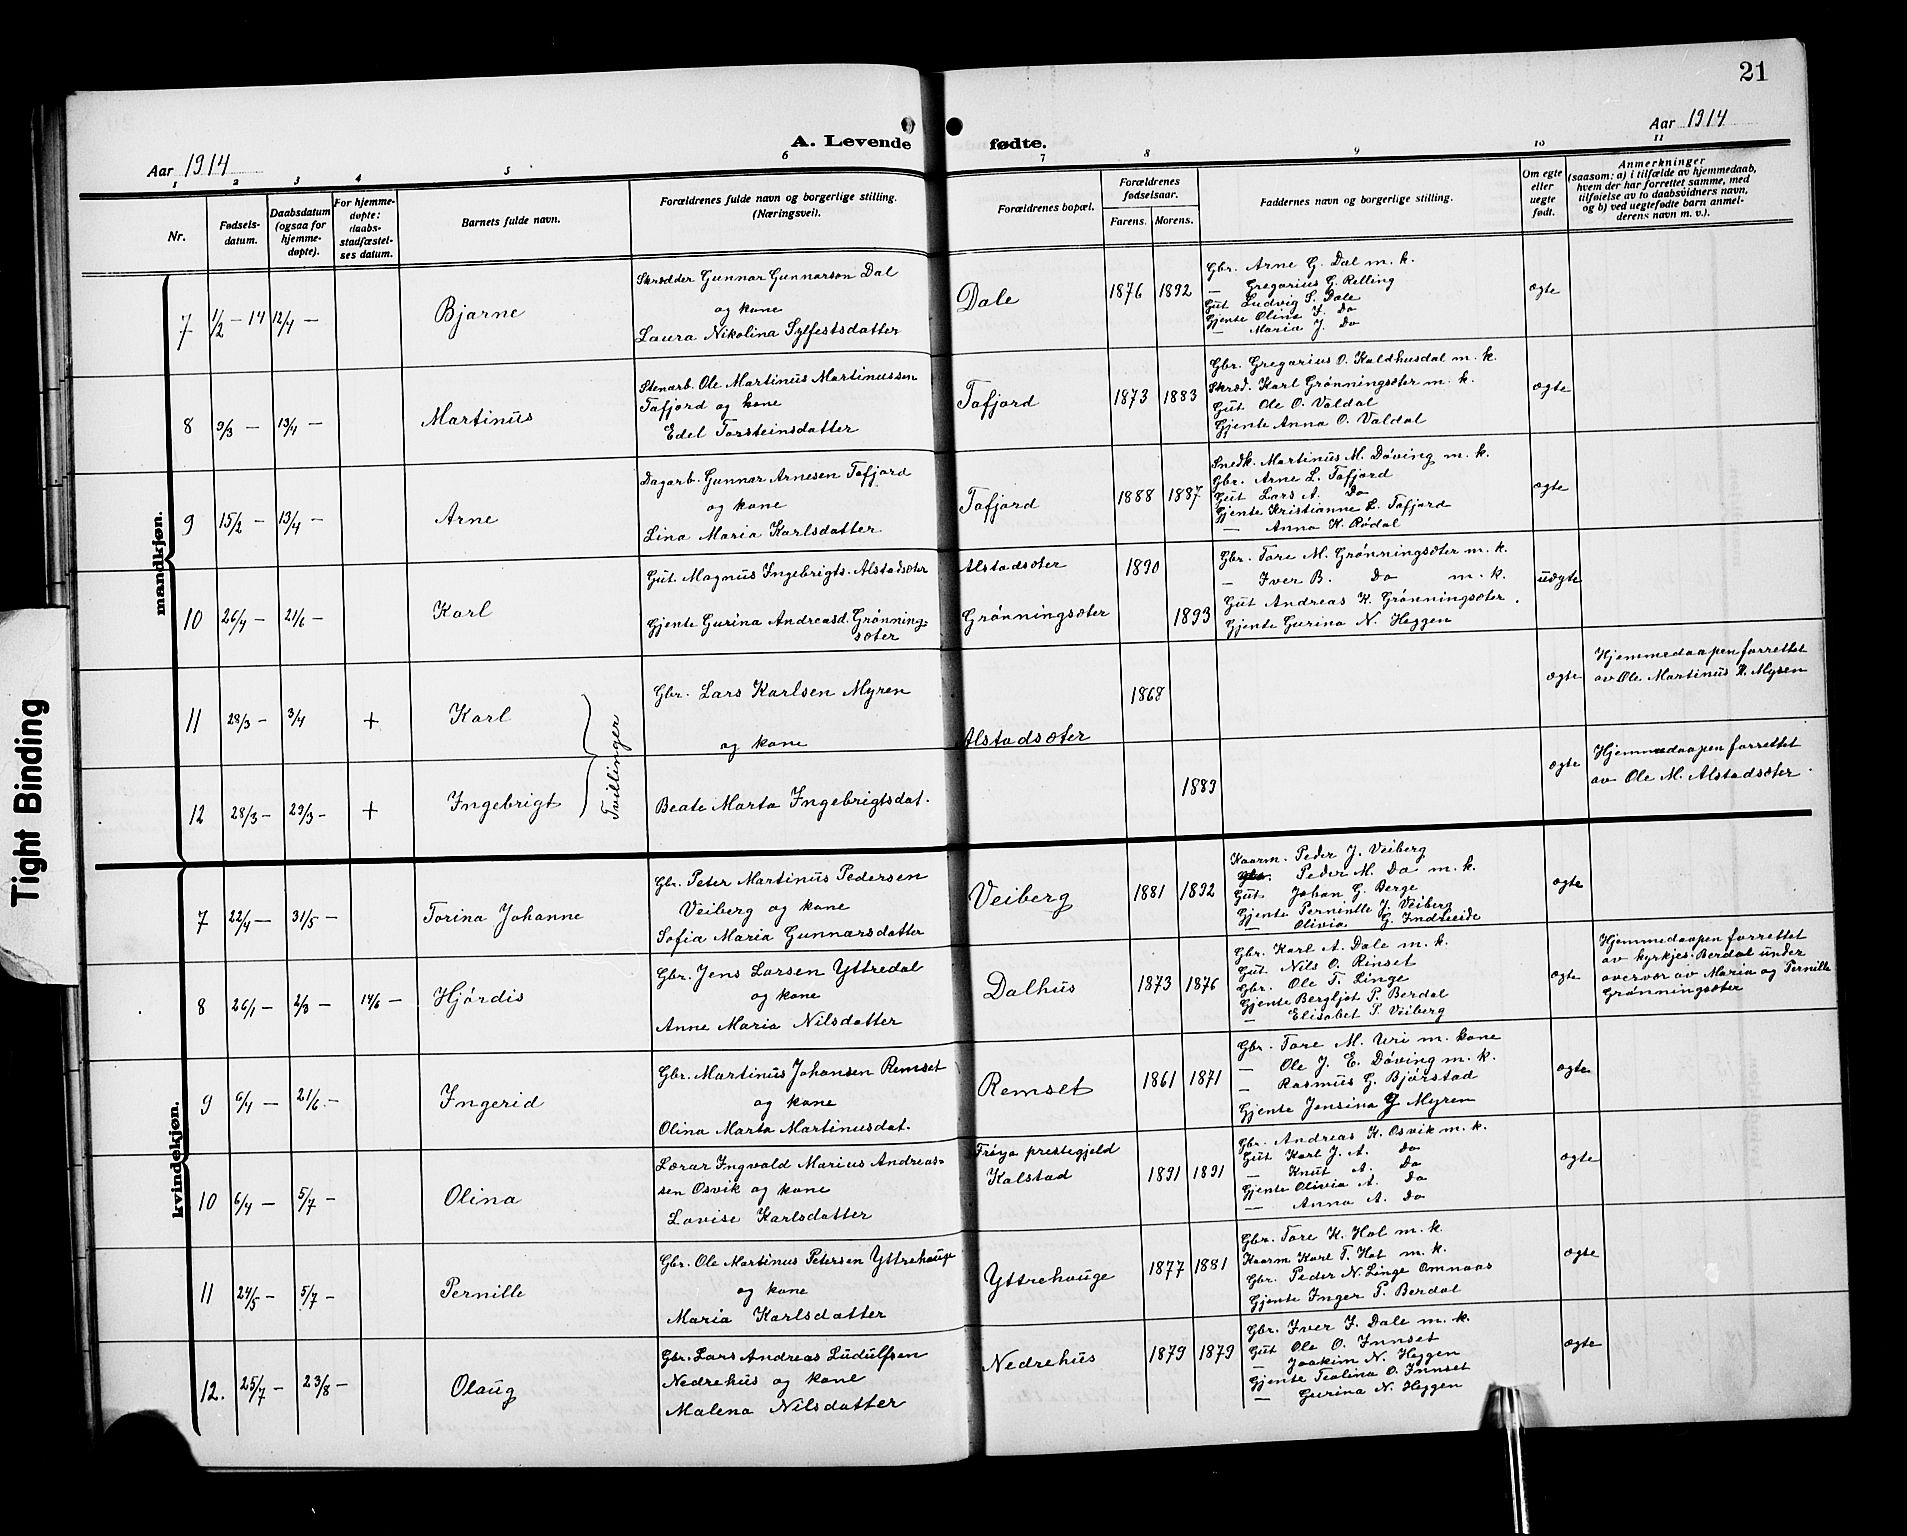 Tight Binding
21
Aar 1914
A. Levende fødte.
Aar 1914
1 2 3 4 5 6 7 8 9 10 11
Nr.
Fødsels-
datum.
Daabsdatum
(ogsaa for
hjemme-
døpte).
For hjemme-
døpte:
daabs-
stadfæstel-
ses datum.
Barnets fulde navn.
Forældrenes fulde navn og borgerlige stilling.
(Næringsvei).
Forældrenes bopæl.
Forældrenes
fødselsaar.
Farens. Morens.
Faddernes navn og borgerlige stilling.
Om egte
eller
uegte
født.
Anmerkninger
(saasom: a) i tilfælde av hjemmedaab,
hvem der har forrettet samme, med
tilføielse av to daabsvidners navn,
og b) ved uegtefødte barn anmel-
derens navn m. v.).
mandkjøn.
7 1/2 - 14 12/4 - Bjarne
Skrædder Gunnar Gunnarson Dal
og kone
Laura Nikolina Sylfestsdatter
Dale 1876 1892
Gbr. Arne G. Dal m. k.
— Gregarius G. Relling
Gut Ludvig S. Dale
Gjente Oline J. Do
— Maria J. Do
ægte
8 9/3 - 13/4 - Martinus
Stenarb. Ole Martinus Martinussen
Tafjord og kone
Edel Torsteinsdatter
Tafjord 1873 1883
Gbr. Gregarius O. Kaldhusdal m. k.
Skræd. Karl Grønningsæter m. k.
Gut Ole O. Valdal
Gjente Anna O. Valdal
ægte
9 15/2 - 13/4 - Arne
Dagarb. Gunnar Arnesen Tafjord
og kone
Lina Maria Karlsdatter
Tafjord 1888 1887
Snedk. Martinus M. Døving m. k.
Gbr. Arne L. Tafjord
Gut Lars A. Do
Gjente Kristianne L. Tafjord
— Anna K. Rødal
ægte
10 26/4 - 21/6 - Karl
Gut. Magnus Ingebrigts. Alstadsæter
Gjente Gurina Andreasd. Grønning-
sæter
Alstadsæter 1890
Grønningsæter 1893
Gbr. Tore M. Grønningsæter m. k.
— Iver B. Do m. k.
Gut Andreas K. Grønningsæter.
Gjente Gurina N. Heggen
uægte
11 28/3 - 3/4 + Karl
Tvilinger
Gbr. Lars Karlsen Myren
og kone
Alstadsæter 1868
ægte
Hjemmedaapen forrettet
av Ole Martinus K. Myren
12 28/3 - 29/3 - + Ingebrigt
Beate Marta Ingebrigtsdat.
1889
ægte
Hjemmedaapen forrettet
av Ole M. Alstadsæter.
kvindekjøn.
7 22/4 - 31/5 - Torina Johanne
Gbr. Peter Martinus Pedersen
Veiberg og kone
Sofia Maria Gunnarsdatter
Veiberg 1881 1892
Kaarm. Peder J. Veiberg
Gbr. Peder M. Do m. k.
Gut Johan G. Berge
Gjente Pernintle J. Veiberg
— Olivia G. Indreeide
ægte
8 26/1 - 2/3 - 14/6 - Hjørdis
Gbr. Jens Larsen Yttredal
og kone
Anne Maria Nilsdatter
Dalhus 1873 1876
Gbr. Karl A. Dale m. k.
Gut. Nils O. Rinset
Gbr. Ole T. Linge
Gjente Bergljot P. Berdal
— Elisabet P. Veiberg
ægte
Hjemmedaapen forrettet
av kyrkjes. Berdal under
overvær av Maria og Pernille
Grønningsæter
9 6/4 - 21/6 - Ingerid
Gbr. Martinus Johansen Remset
og kone
Olina Marta Martinusdat.
Remset 1861 1871
Gbr. Tore M. Uri m. kone
— Ole J. E. Døving m. k.
— Rasmus G. Bjørstad
Gjente Jensina G Myren
ægte
10 6/4 - 5/7 - Olina
Lærar Ingvald Marius Andreas-
sen Osvik og kone
Lovise Karlsdatter
Frøya prestegjeld
Kalstad 1891 1891
Gbr. Andreas K. Osvik m. k.
Gut Karl J. A. Do
— Knut A. Do
Gjente Olivia A. Do
— Anna A. Do
ægte
11 24/5 - 5/7 - Pernille
Gbr. Ole Martinus Petersen Yttrehauge
og kone
Maria Karlsdatter
Yttrehauge 1877 1881
Gbr. Tore K. Hol m. k.
Kaarm Karl T. Hol m. k.
Gbr. Peder N. Linge Omnaas
Gjente Inger P. Berdal
ægte
12. 25/7 - 23/8 - Olaug
Gbr. Lars Andreas Ludulfsen
Nedrehus og kone
Malena Nilsdatter
Nedrehus 1879 1879
Gbr. Iver J. Dale m. k.
Gut Ole O. Innset
— Joakim N. Heggen
Gjente Teolina O. Innset
— Gurina N. Heggen
ægte